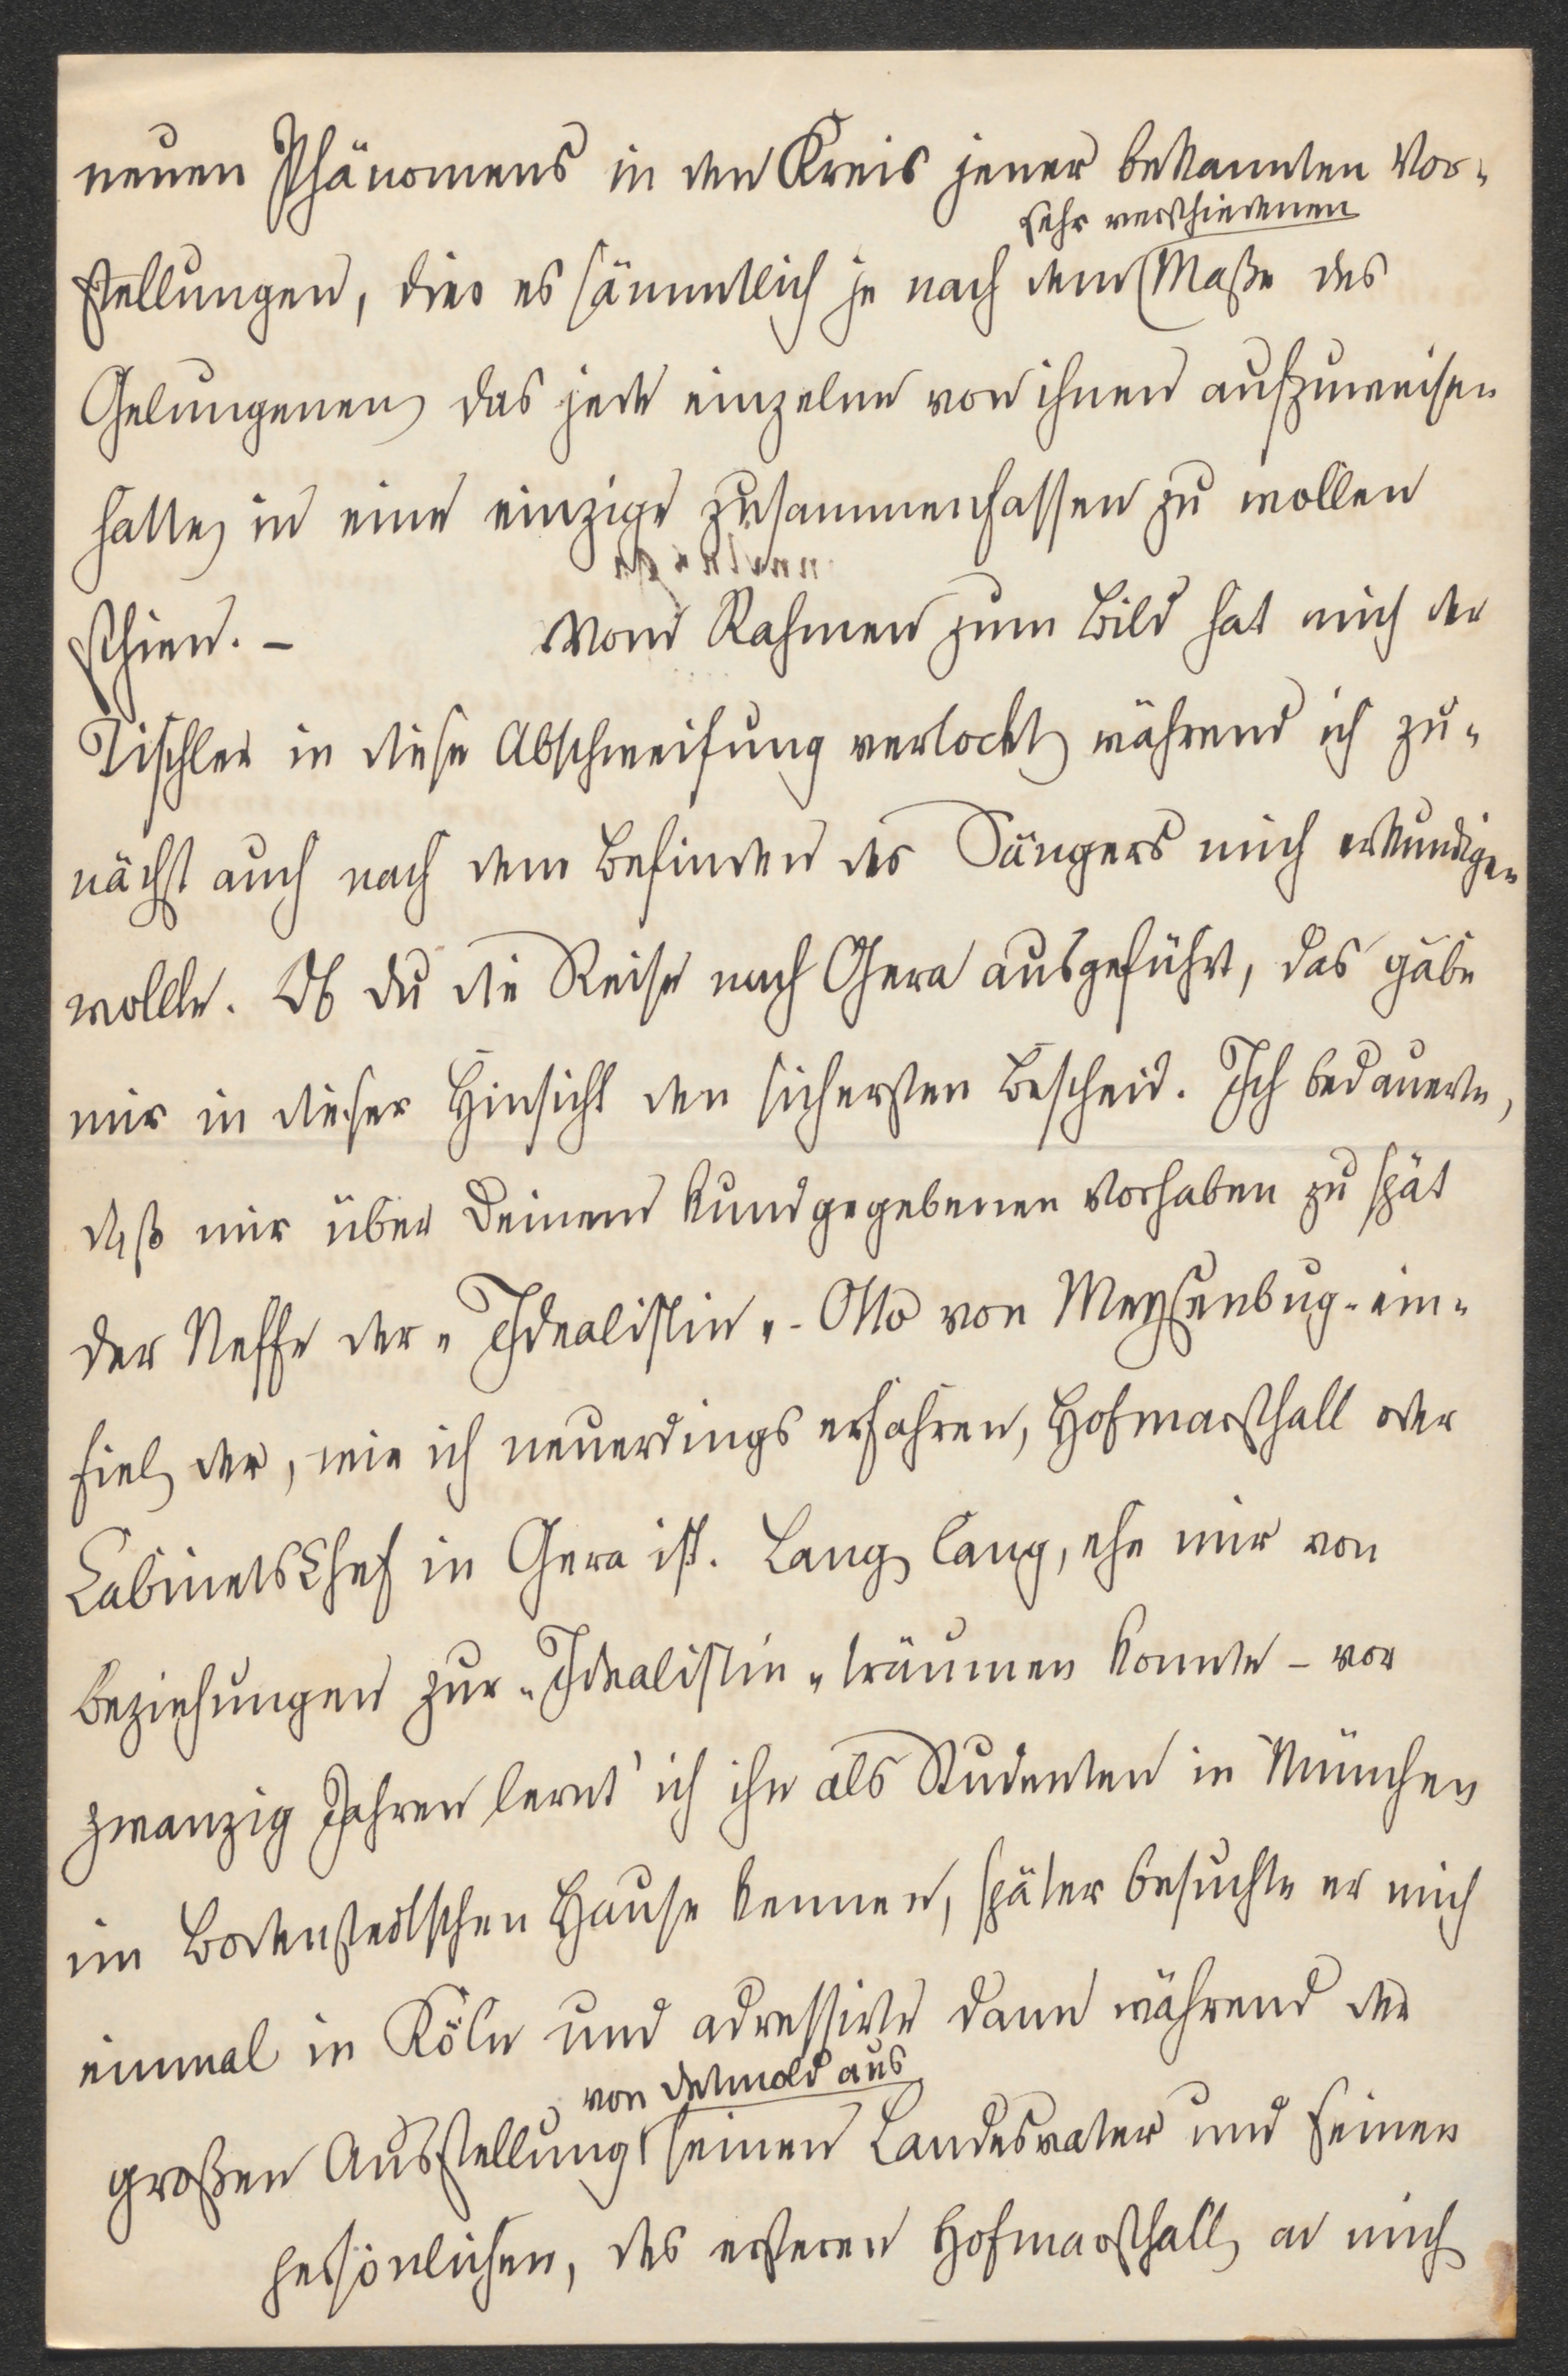 neuen Phänomens in den Kreis jener bekannten Vor-
sehr verschiedenen
stellungen, die es sämmtlich je nach dem Maße des
Gelungenen, das jede einzelne von ihnen aufzuweisen
hatte, in eine einzige zusammenfassen zu wollen
schien. – Vom Rahmen zum Bild hat mich der
Tischler in diese Abschweifung verlockt, während ich zu-
nächst auch nach dem Befinden des Sängers mich erkundigen
wollte. Ob du die Reise nach Gera ausgeführt, das gäbe
mir in dieser Hinsicht den sichersten Bescheid. Ich bedauerte,
daß mir über Deinem kundgegebenen Vorhaben zu spät
der Neffe der „Idealistin„ - Otto von Meysenbug - ein-
fiel, der, wie ich neuerdings erfahren, Hofmarschall oder
CabinetsChef in Gera ist. Lang, lang, ehe mir von
Beziehungen zur „Idealistin„ träumen konnte – vor
zwanzig Jahren lernt' ich ihn als Studenten in München
im Bodenstedtschen Hause kennen, später besuchte er mich
einmal in Köln und adressirte dann während der
von Detmold aus
großen Ausstellung seinen Landesvater und seinen
persönlichen, des ersteren Hofmarschall, an mich